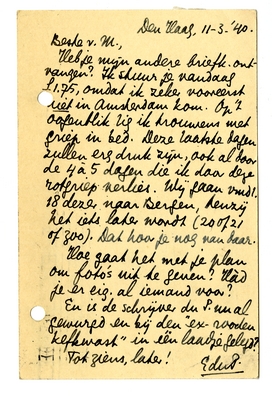 Den Haag, 11-3-'40.
Beste v. M.,
Heb je mijn andere briefk. ont-
vangen? Ik stuur je vandaag
f 1.75, omdat ik zeker vooreerst
niet in Amsterdam kom. Op 't
oogenblik lig ik trouwens met
griep in bed. Deze laatste dagen
zullen erg druk zijn, ook al door
de 4 à 5 dagen die ik door deze
rotgriep verlies. Wij gaan vmdl.
18 dezer naar Bergen, tenzij
het iets later wordt (20 of 21
of zoo). Dat hoor je nog van haar.
Hoe gaat het met je plan
om foto's uit te geven? Had
je er eig. al iemand voor?
En is de schrijver du P. nu al
gewurgd en bij den "ex-rooden
in één laadje gelegd?
Tot ziens, later!
EduP.